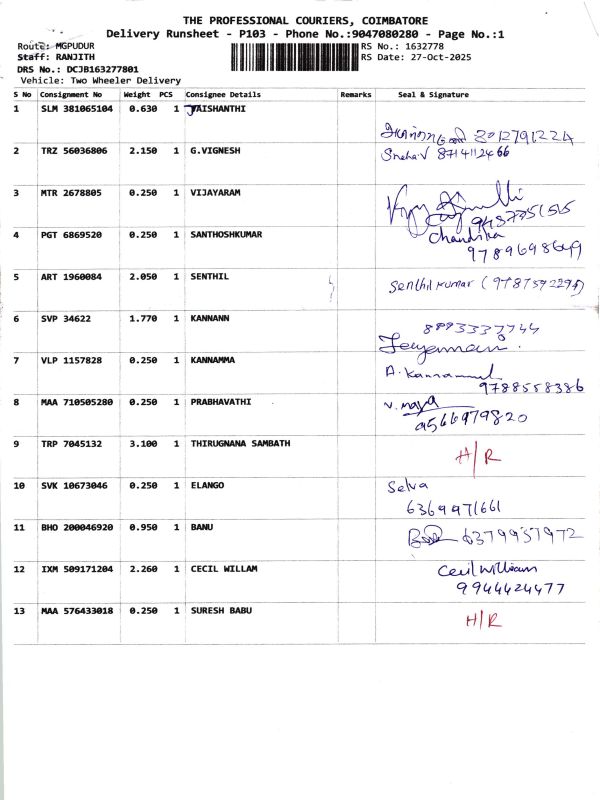 THE PROFESSIONAL COURIERS, COIMBATORE
Delivery Runsheet - P103 - Phone No.:9047080280 - Page No.:1
Route: MGPUDUR
RS No.: 1632778
Staff: RANJITH
RS Date: 27-Oct-2025
DRS No.: DCJB163277801
Vehicle: Two Wheeler Delivery
S No Consignment No Weight PCS Consignee Details Remarks Seal & Signature
1 SLM 381065104 0.630 1 JAISHANTHI
2 TRZ 56036806 2.150 1 G.VIGNESH
Sneha V 8714112466
3 MTR 2678805 0.250 1 VIJAYARAM
4 PGT 6869520 0.250 1 SANTHOSHKUMAR
Chandrika
9789698649
5 ART 1960084 2.050 1 SENTHIL
Senthil kumar
6 SVP 34622 1.770 1 KANNANN
7 VLP 1157828 0.250 1 KANNAMMA
A. Kannammal
9788558386
8 MAA 710505280 0.250 1 PRABHAVATHI
V. Maya
9566979820
9 TRP 7045132 3.100 1 THIRUGNANA SAMBATH
H/R
10 SVK 10673046 0.250 1 ELANGO
Selva
6369971661
11 BHO 200046920 0.950 1 BANU
6379957972
12 IXM 509171204 2.260 1 CECIL WILLAM
Cecil William
9944424477
13 MAA 576433018 0.250 1 SURESH BABU
H/R